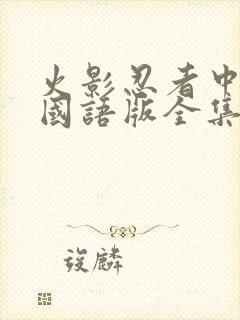 火影忍者中
國語版全集
筱麟